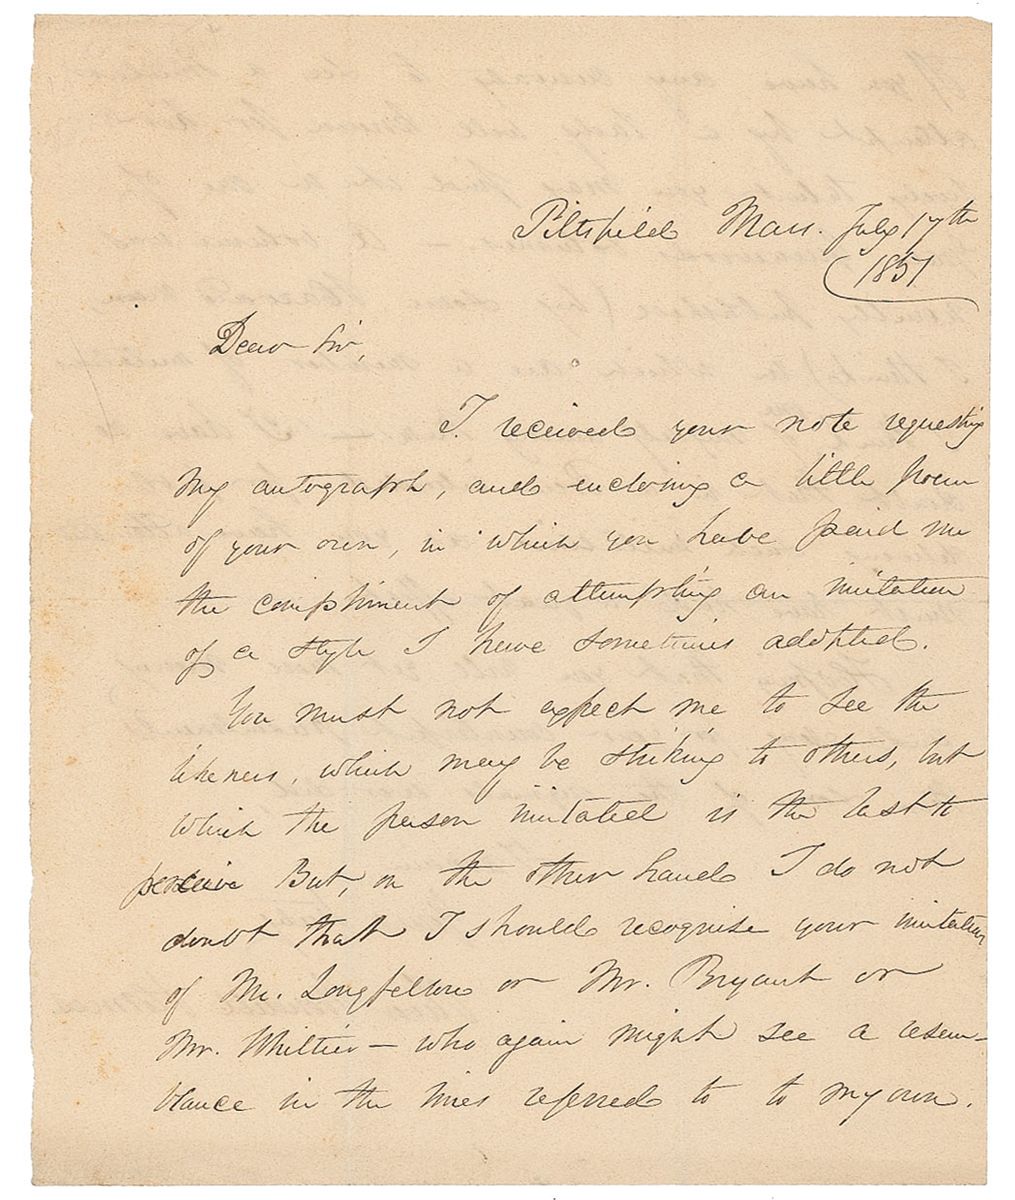 Pittsfield Mass. July 17th
1851
Dear Sir,
I received your note requesting
my autograph, and enclosing a little poem
of your own, in which you have paid me
the compliment of attempting an imitation
of a style I have sometimes adopted.
You must not expect me to see the
likeness, which may be striking to others, but
which the person imitated is the last to
perceive But, on the other hand I do not
doubt that I should recognise your imitation
of Mr. Longfellow or Mr. Bryant or
Mr. Whittier — who again might see a resem-
blance in the lines referred to to my own.